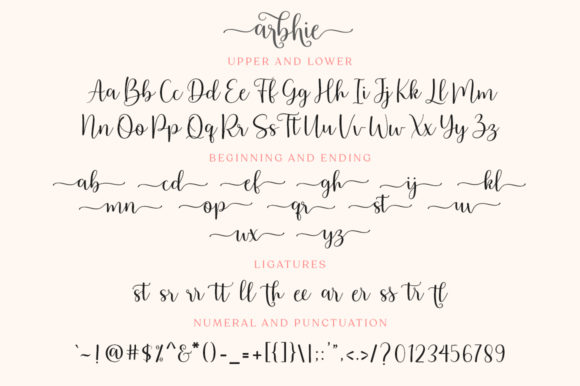 arbhie
UPPER AND LOWER
Aa Bb Cc Dd Ee Ff Gg Hh Ii Jj Kk Ll Mm
Nn Oo Pp Qq Rr Ss Tt Uu Vv Ww Xx Yy Zz
BEGINNING AND ENDING
ab cd ef gh ij kl
mn op qr st uv
wx yz
LIGATURES
st sr rr tt ll th ee ar er ss tr tl
NUMERAL AND PUNCTUATION
`~!@#$%^&*()-_=+[{]}\|;:'",<.>/?0123456789